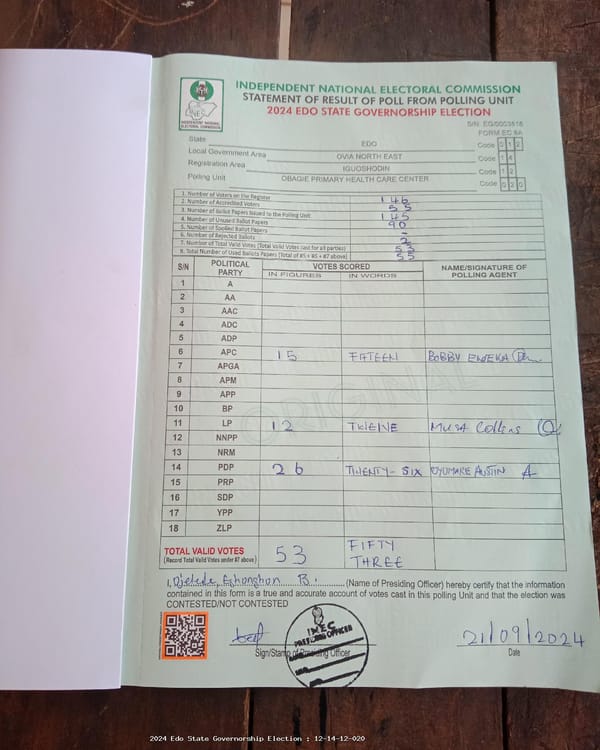 INDEPENDENT NATIONAL ELECTORAL COMMISSION
STATEMENT OF RESULT OF POLL FROM POLLING UNIT
2024 EDO STATE GOVERNORSHIP ELECTION
INEC
INDEPENDENT NATIONAL ELECTORAL COMMISSION
FORM EC 8A
State EDO Code 0 1 2
Local Government Area OVIA NORTH EAST Code 1 4
Registration Area IGUOSHODIN Code 1 2
Polling Unit OBAGIE PRIMARY HEALTH CARE CENTER Code 0 2 0
1. Number of Voters on the Register 146
2. Number of Accredited Voters 55
3. Number of Ballot Papers Issued to the Polling Unit 145
4. Number of Unused Ballot Papers 90
5. Number of Spoiled Ballot Papers -
6. Number of Rejected Ballots 2
7. Number of Total Valid Votes (Total Valid Votes cast for all parties) 53
8. Total Number of Used Ballots Papers (Total of #5 + #6 + #7 above) 55
S/N POLITICAL PARTY VOTES SCORED NAME/SIGNATURE OF POLLING AGENT
IN FIGURES IN WORDS
1 A
2 AA
3 AAC
4 ADC
5 ADP
6 APC 15 FIFTEEN BOBBY
7 APGA
8 APM
9 APP
10 BP
11 LP 12 TWELVE MUSA Collins
12 NNPP
13 NRM
14 PDP 26 TWENTY-SIX AUSTIN
15 PRP
16 SDP
17 YPP
18 ZLP
ORIGINAL
TOTAL VALID VOTES 53 FIFTY THREE
(Record Total Valid Votes under #7 above)
I, B. (Name of Presiding Officer) hereby certify that the information
contained in this form is a true and accurate account of votes cast in this polling Unit and that the election was
CONTESTED/NOT CONTESTED
INEC
PRESIDING OFFICER
21/09/2024
Sign/Stamp of Presiding Officer Date
2024 Edo State Governorship Election : 12-14-12-020